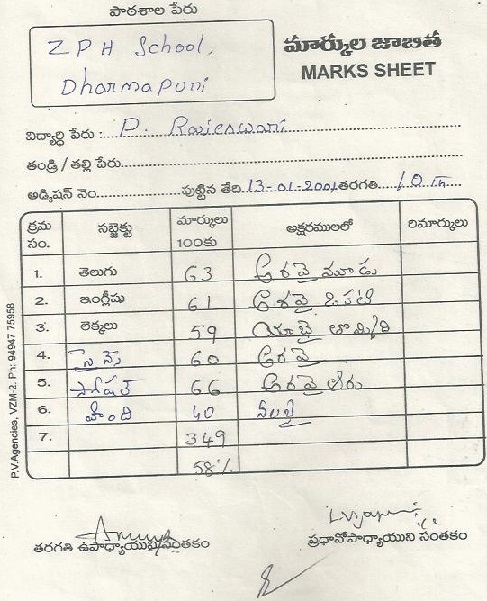 పాఠశాల పేరు
ZPH School,
Dharmapuri
మార్కుల జాబితా
MARKS SHEET
విద్యార్థి పేరు : P. Rajeswari
తండ్రి / తల్లి పేరు
అడ్మిషన్ నెం. పుట్టిన తేది 13-01-2001 తరగతి 10th
క్రమ సం. సబ్జెక్టు మార్కులు 100కు అక్షరములలో రిమార్కులు
1. తెలుగు 63 అరవై మూడు
2. ఇంగ్లీషు 61 అరవై ఒకటి
3. లెక్కలు 59 యాభై తొమ్మిది
4. సైన్స్ 60 అరవై
5. సోషల్ 66 అరవై ఆరు
6. హింది 40 నలభై
7. 349
58%
తరగతి ఉపాధ్యాయుని సంతకం
ప్రధానోపాధ్యాయుని సంతకం
P.V.Agencies, VZM-2. Ph: 94947 75958